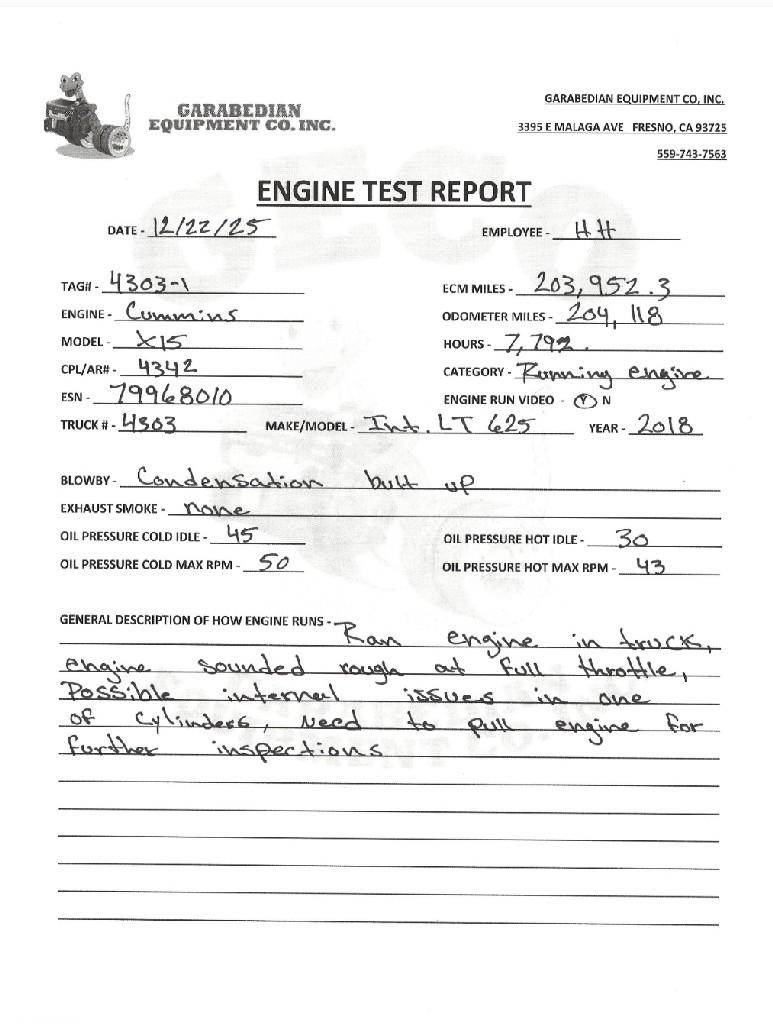 GARABEDIAN
EQUIPMENT CO. INC.
GARABEDIAN EQUIPMENT CO, INC.
3395 E MALAGA AVE FRESNO, CA 93725
559-743-7563
ENGINE TEST REPORT
DATE - 12/22/25 EMPLOYEE - HH
TAG# - 4303-1 ECM MILES - 203,952.3
ENGINE - Cummins ODOMETER MILES - 204,118
MODEL - X15 HOURS - 7,792.
CPL/AR# - 4342 CATEGORY - Running engine
ESN - 79968010 ENGINE RUN VIDEO - Y N
TRUCK # - 4303 MAKE/MODEL - Int. LT 625 YEAR - 2018
BLOWBY - Condensation built up
EXHAUST SMOKE - none
OIL PRESSURE COLD IDLE - 45 OIL PRESSURE HOT IDLE - 30
OIL PRESSURE COLD MAX RPM - 50 OIL PRESSURE HOT MAX RPM - 43
GENERAL DESCRIPTION OF HOW ENGINE RUNS - Ran engine in truck,
engine sounded rough at full throttle,
Possible internal issues in one
of cylinders, need to pull engine for
further inspections